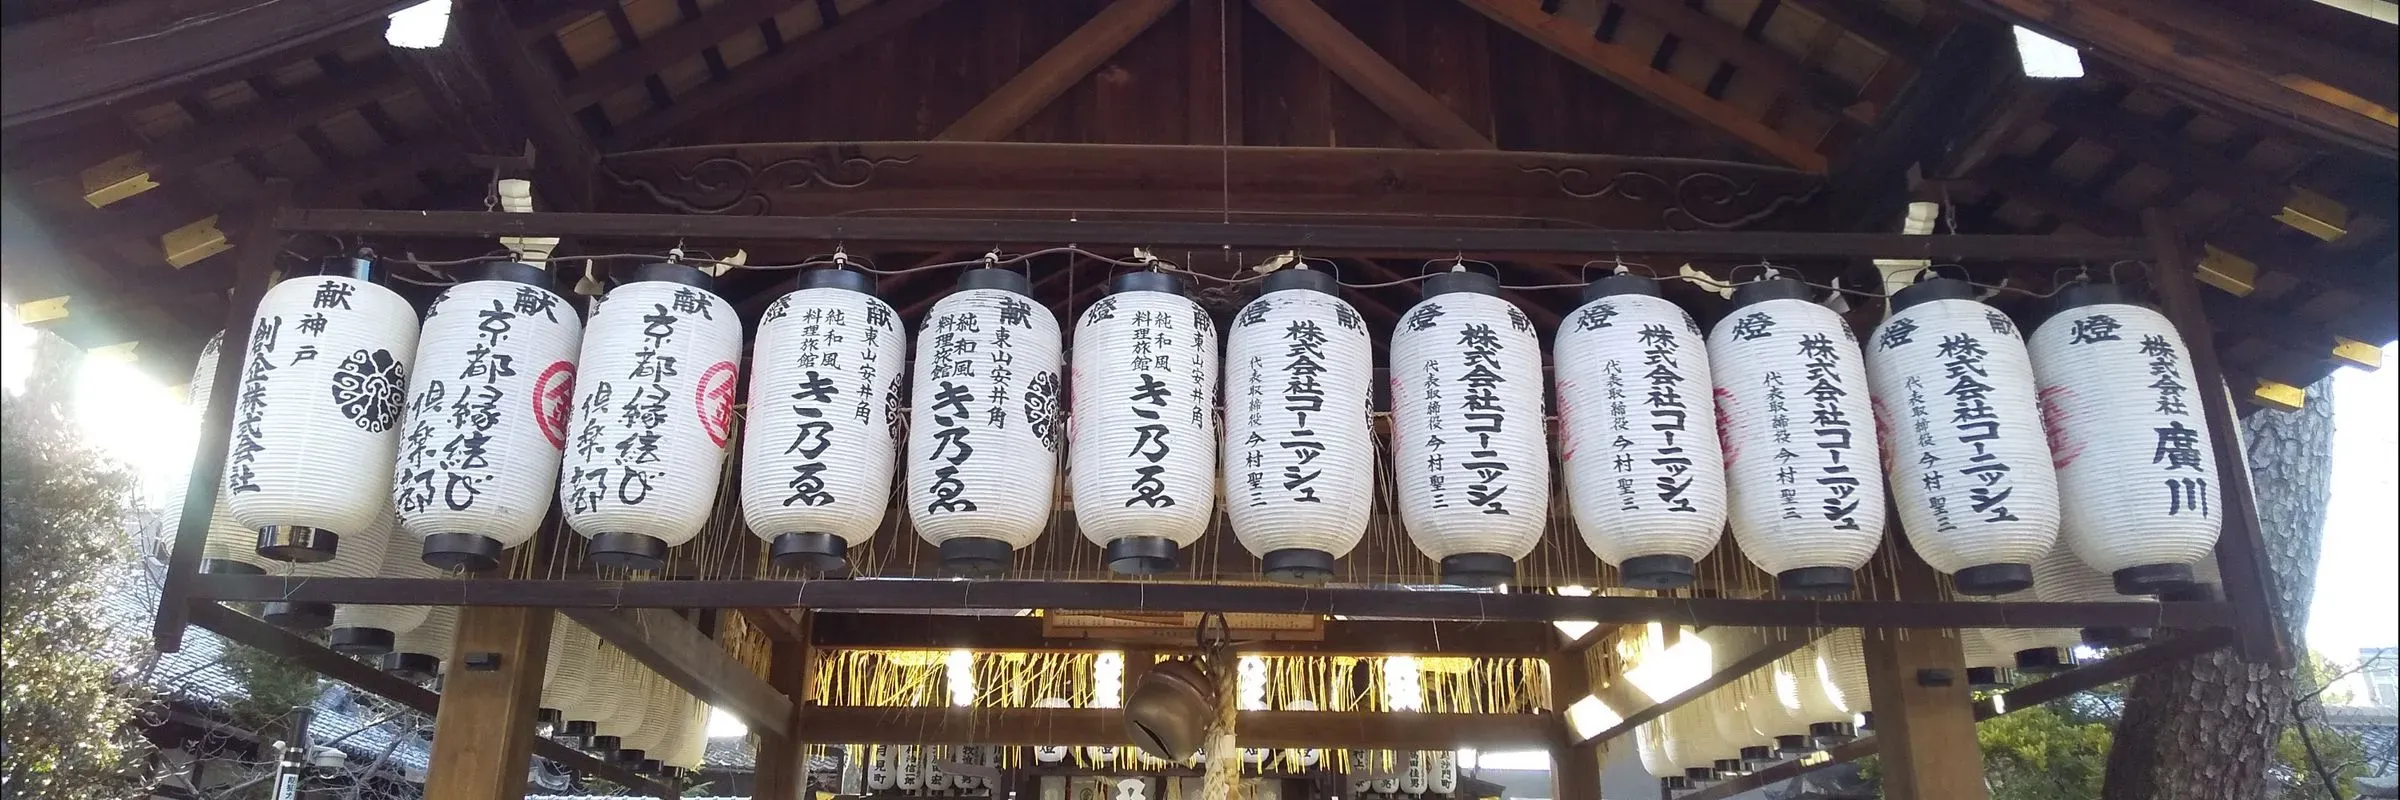 献
神戸
創企株式会社
献
京都縁結び
倶楽部
金
献
京都縁結び
倶楽部
金
献
燈
東山安井角
純和風
料理旅館
き乃ゑ
献
燈
東山安井角
純和風
料理旅館
き乃ゑ
燈
東山安井角
純和風
料理旅館
き乃ゑ
献
燈
株式会社コーニッシュ
代表取締役 今村聖三
献
燈
株式会社コーニッシュ
代表取締役 今村聖三
燈
株式会社コーニッシュ
代表取締役 今村聖三
燈
株式会社コーニッシュ
代表取締役 今村聖三
献
燈
株式会社コーニッシュ
代表取締役 今村聖三
燈
株式会社 廣川